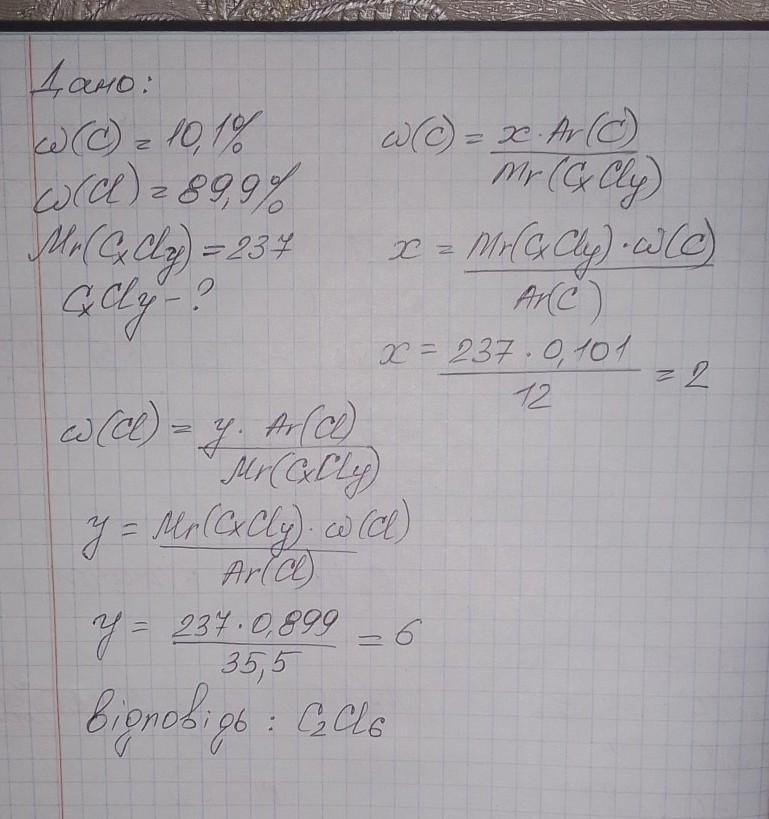 Дано:
ω(C) = 10,1%
ω(Cl) = 89,9%
Mr(CxCly) = 237
CxCly - ?
ω(C) = x · Ar(C) / Mr(CxCly)
x = Mr(CxCly) · ω(C) / Ar(C)
x = 237 · 0,101 / 12 = 2
ω(Cl) = y · Ar(Cl) / Mr(CxCly)
y = Mr(CxCly) · ω(Cl) / Ar(Cl)
y = 237 · 0,899 / 35,5 = 6
Відповідь : C2Cl6